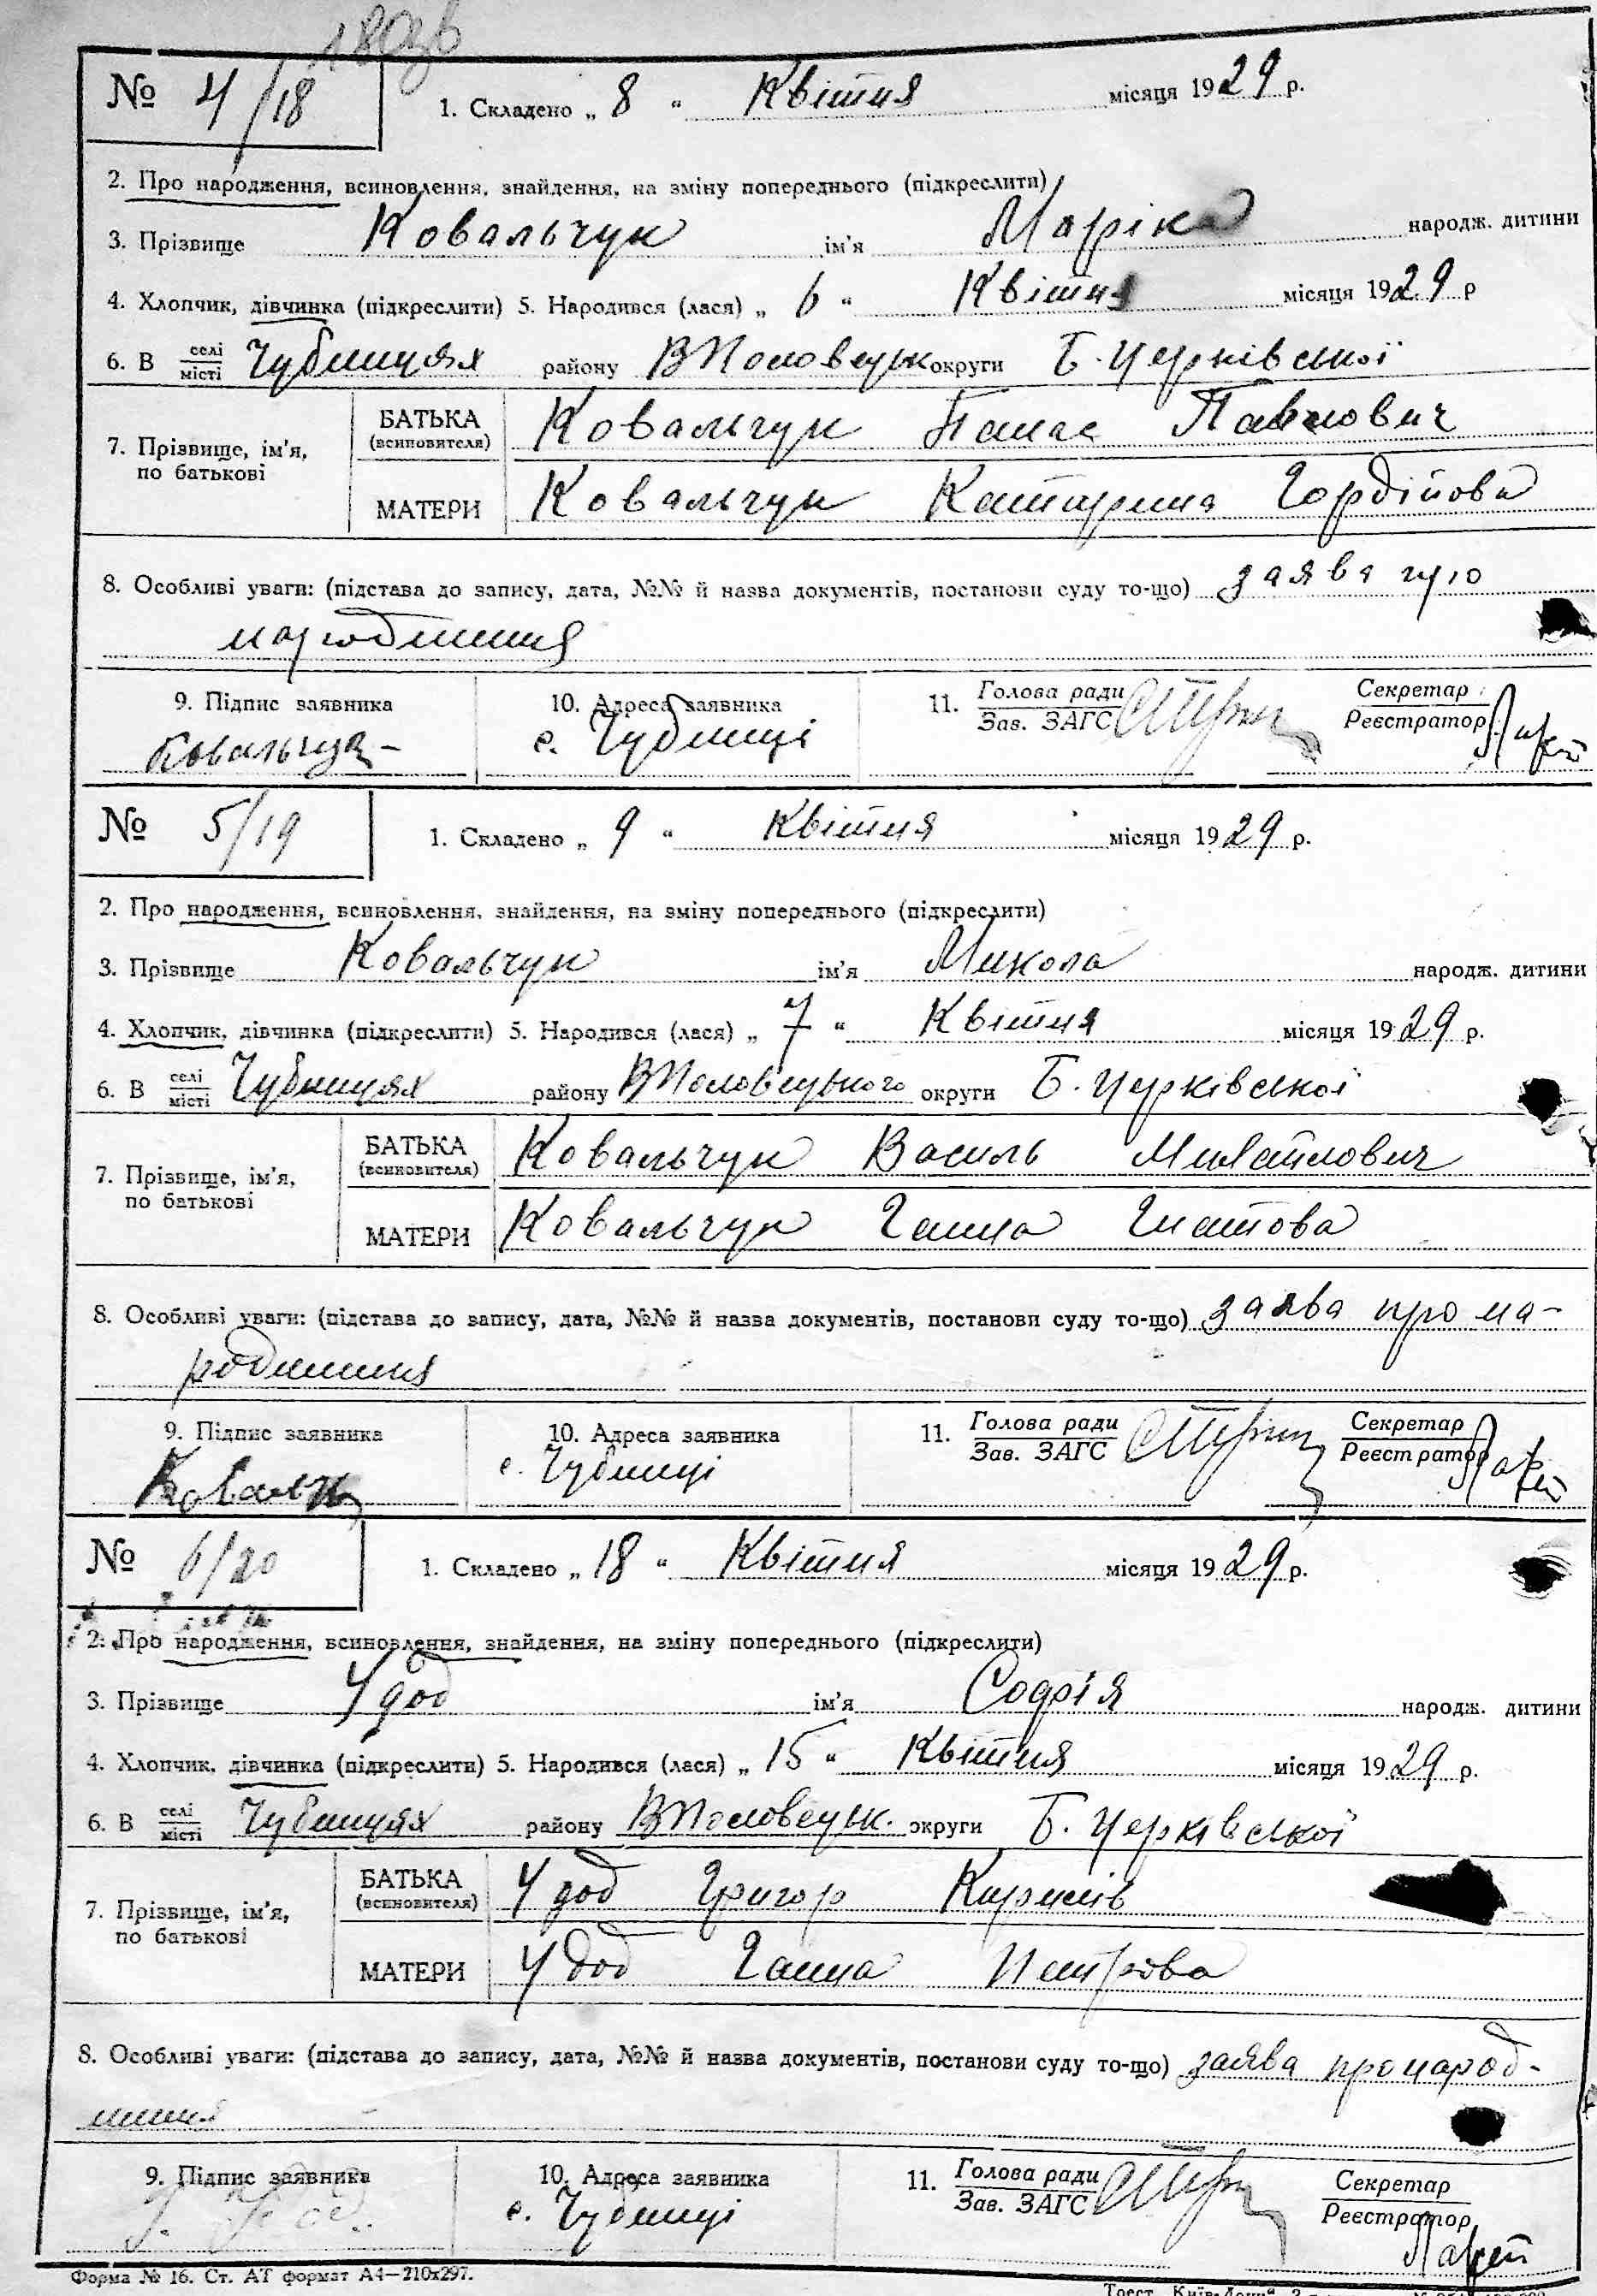 № 4/18
1. Складено „ 8 “ Квітня місяця 1929 р.
2. Про народження, всиновлення, знайдення, на зміну попереднього (підкреслити)
3. Прізвище Ковальчук ім'я Маріка народж. дитини
4. Хлопчик, дівчинка (підкреслити) 5. Народився (лася) „ 6 “ Квітня місяця 1929 р
6. В селі/місті Чубинцях району ВПоловецьк округи Б. Церківської
7. Прізвище, ім'я, по батькові
БАТЬКА (всиновителя) Ковальчук Панас Павлович
МАТЕРИ Ковальчук Катерина Гордійова
8. Особливі уваги: (підстава до запису, дата, №№ й назва документів, постанови суду то-що) заява про
народження
9. Підпис заявника 10. Адреса заявника 11. Голова ради/Зав. ЗАГС Секретар/Реєстратор
Ковальчук с. Чубинці
№ 5/19
1. Складено „ 9 “ Квітня місяця 1929 р.
2. Про народження, всиновлення, знайдення, на зміну попереднього (підкреслити)
3. Прізвище Ковальчук ім'я Микола народж. дитини
4. Хлопчик, дівчинка (підкреслити) 5. Народився (лася) „ 7 “ Квітня місяця 1929 р.
6. В селі/місті Чубинцях району ВПоловецького округи Б. Церківської
7. Прізвище, ім'я, по батькові
БАТЬКА (всиновителя) Ковальчук Василь Михайлович
МАТЕРИ Ковальчук Ганна Гнатова
8. Особливі уваги: (підстава до запису, дата, №№ й назва документів, постанови суду то-що) заява про на-
родження
9. Підпис заявника 10. Адреса заявника 11. Голова ради/Зав. ЗАГС Секретар/Реєстратор
с. Чубинці
№ 6/20
1. Складено „ 18 “ Квітня місяця 1929 р.
2. Про народження, всиновлення, знайдення, на зміну попереднього (підкреслити)
3. Прізвище Удод ім'я Софія народж. дитини
4. Хлопчик, дівчинка (підкреслити) 5. Народився (лася) „ 15 “ Квітня місяця 1929 р.
6. В селі/місті Чубинцях району ВПоловецьк. округи Б. Церківської
7. Прізвище, ім'я, по батькові
БАТЬКА (всиновителя) Удод Григор Кирилів
МАТЕРИ Удод Ганна Петрова
8. Особливі уваги: (підстава до запису, дата, №№ й назва документів, постанови суду то-що) заява про народ-
ження
9. Підпис заявника 10. Адреса заявника 11. Голова ради/Зав. ЗАГС Секретар/Реєстратор
с. Чубинці
Форма № 16. Ст. АТ формат А4—210х297.